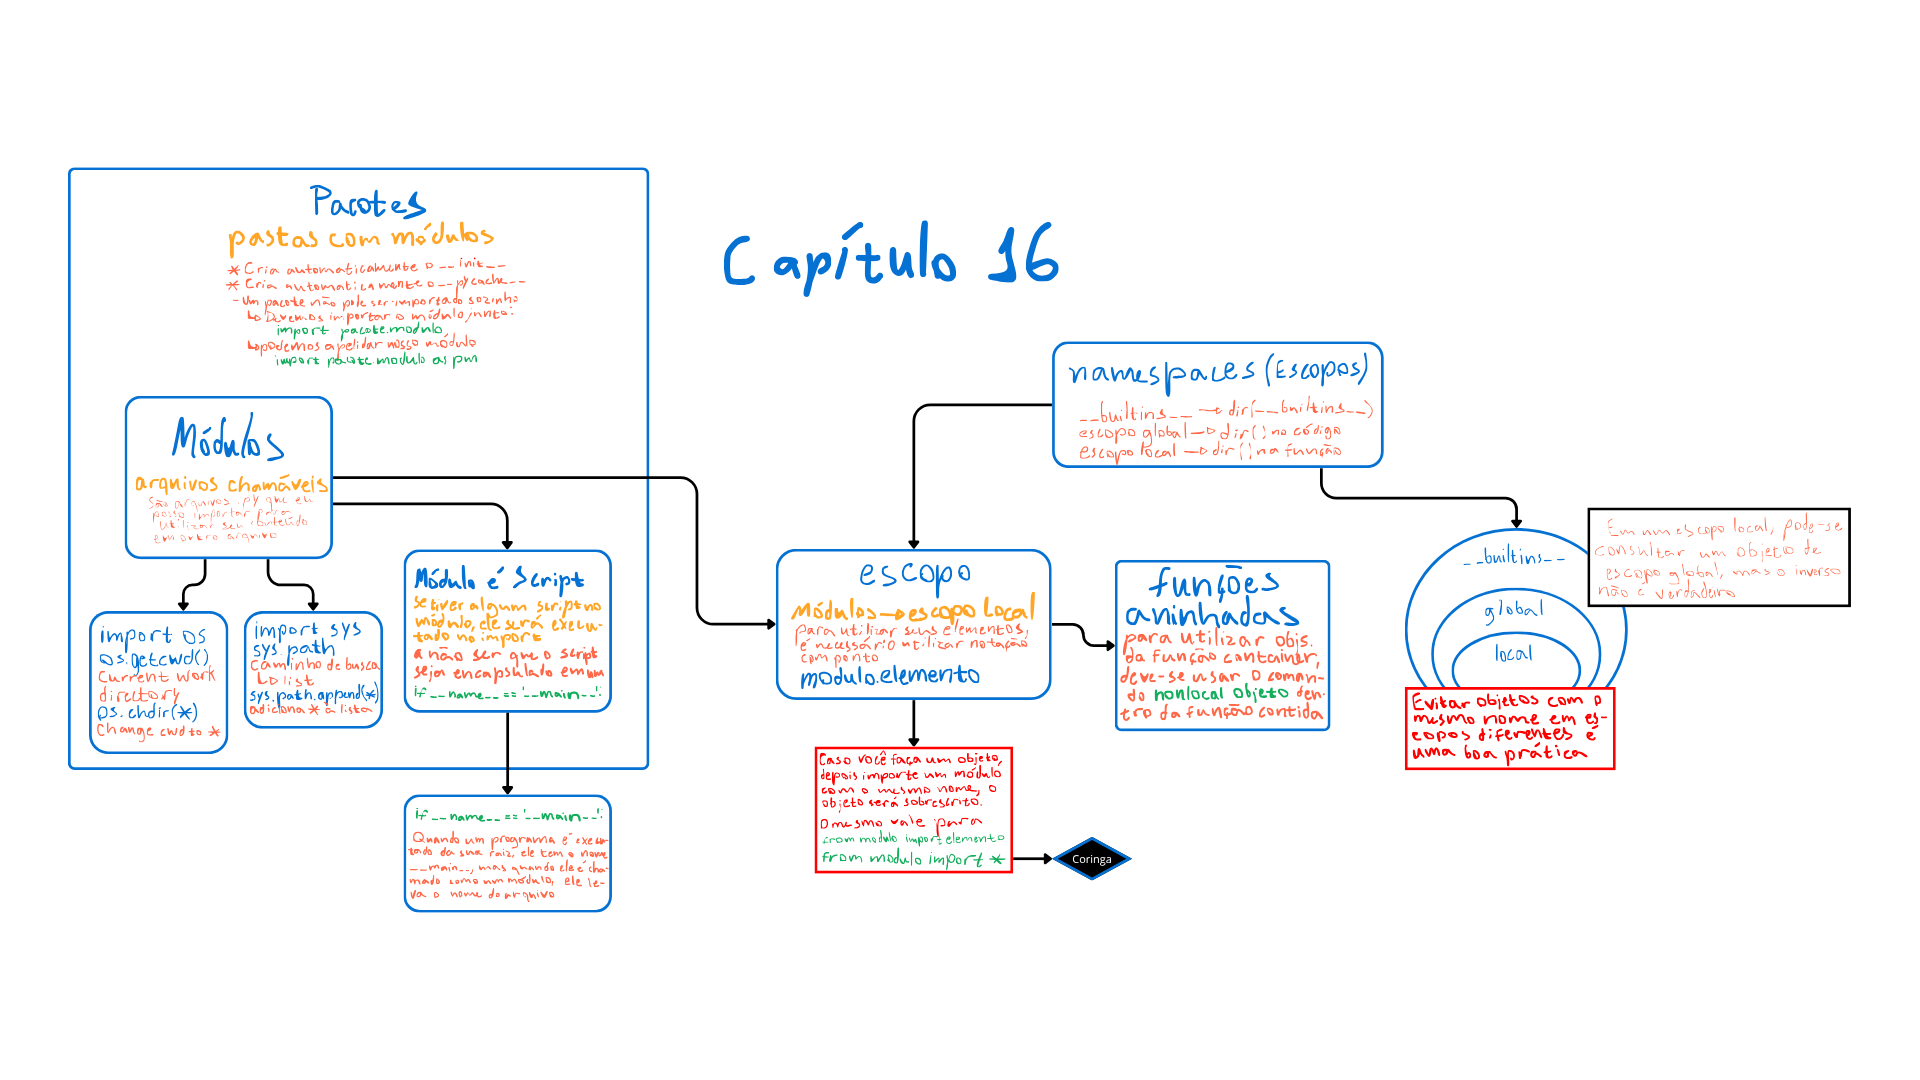 Capítulo 16
Pacotes
pastas com módulos
* Cria automaticamente o __init__
* Cria automaticamente o __pycache__
- um pacote não pode ser importado sozinho
↳ Devemos importar o módulo junto:
import pacote.modulo
↳ podemos apelidar nosso módulo
import pacote.modulo as pm
Módulos
arquivos chamáveis
São arquivos .py que eu
posso importar para
utilizar seu conteúdo
em outro arquivo
import os
os.getcwd()
Current work
directory
os.chdir(*)
Change cwd to *
import sys
sys.path
Caminho de busca
↳ list
sys.path.append(*)
adiciona * à lista
Módulo é Script
se tiver algum script no
módulo, ele será execu-
tado no import
a não ser que o script
seja encapsulado em um
if __name__ == '__main__':
if __name__ == '__main__':
Quando um programa é execu-
tado da sua raiz, ele tem o nome
__main__, mas quando ele é cha-
mado como um módulo, ele le-
va o nome do arquivo
namespaces (Escopos)
__builtins__ → dir(__builtins__)
escopo global → dir() no código
escopo local → dir() na função
escopo
Módulos → escopo local
para utilizar seus elementos,
é necessário utilizar notação
com ponto
modulo.elemento
Caso você faça um objeto,
depois importe um módulo
com o mesmo nome, o
objeto será sobrescrito.
O mesmo vale para
from modulo import elemento
from modulo import *
Coringa
funções
aninhadas
para utilizar objs.
da função container,
deve-se usar o coman-
do nonlocal objeto den-
tro da função contida
__builtins__
global
local
Em um escopo local, pode-se
consultar um objeto de
escopo global, mas o inverso
não é verdadeiro
Evitar objetos com o
mesmo nome em es-
copos diferentes é
uma boa prática